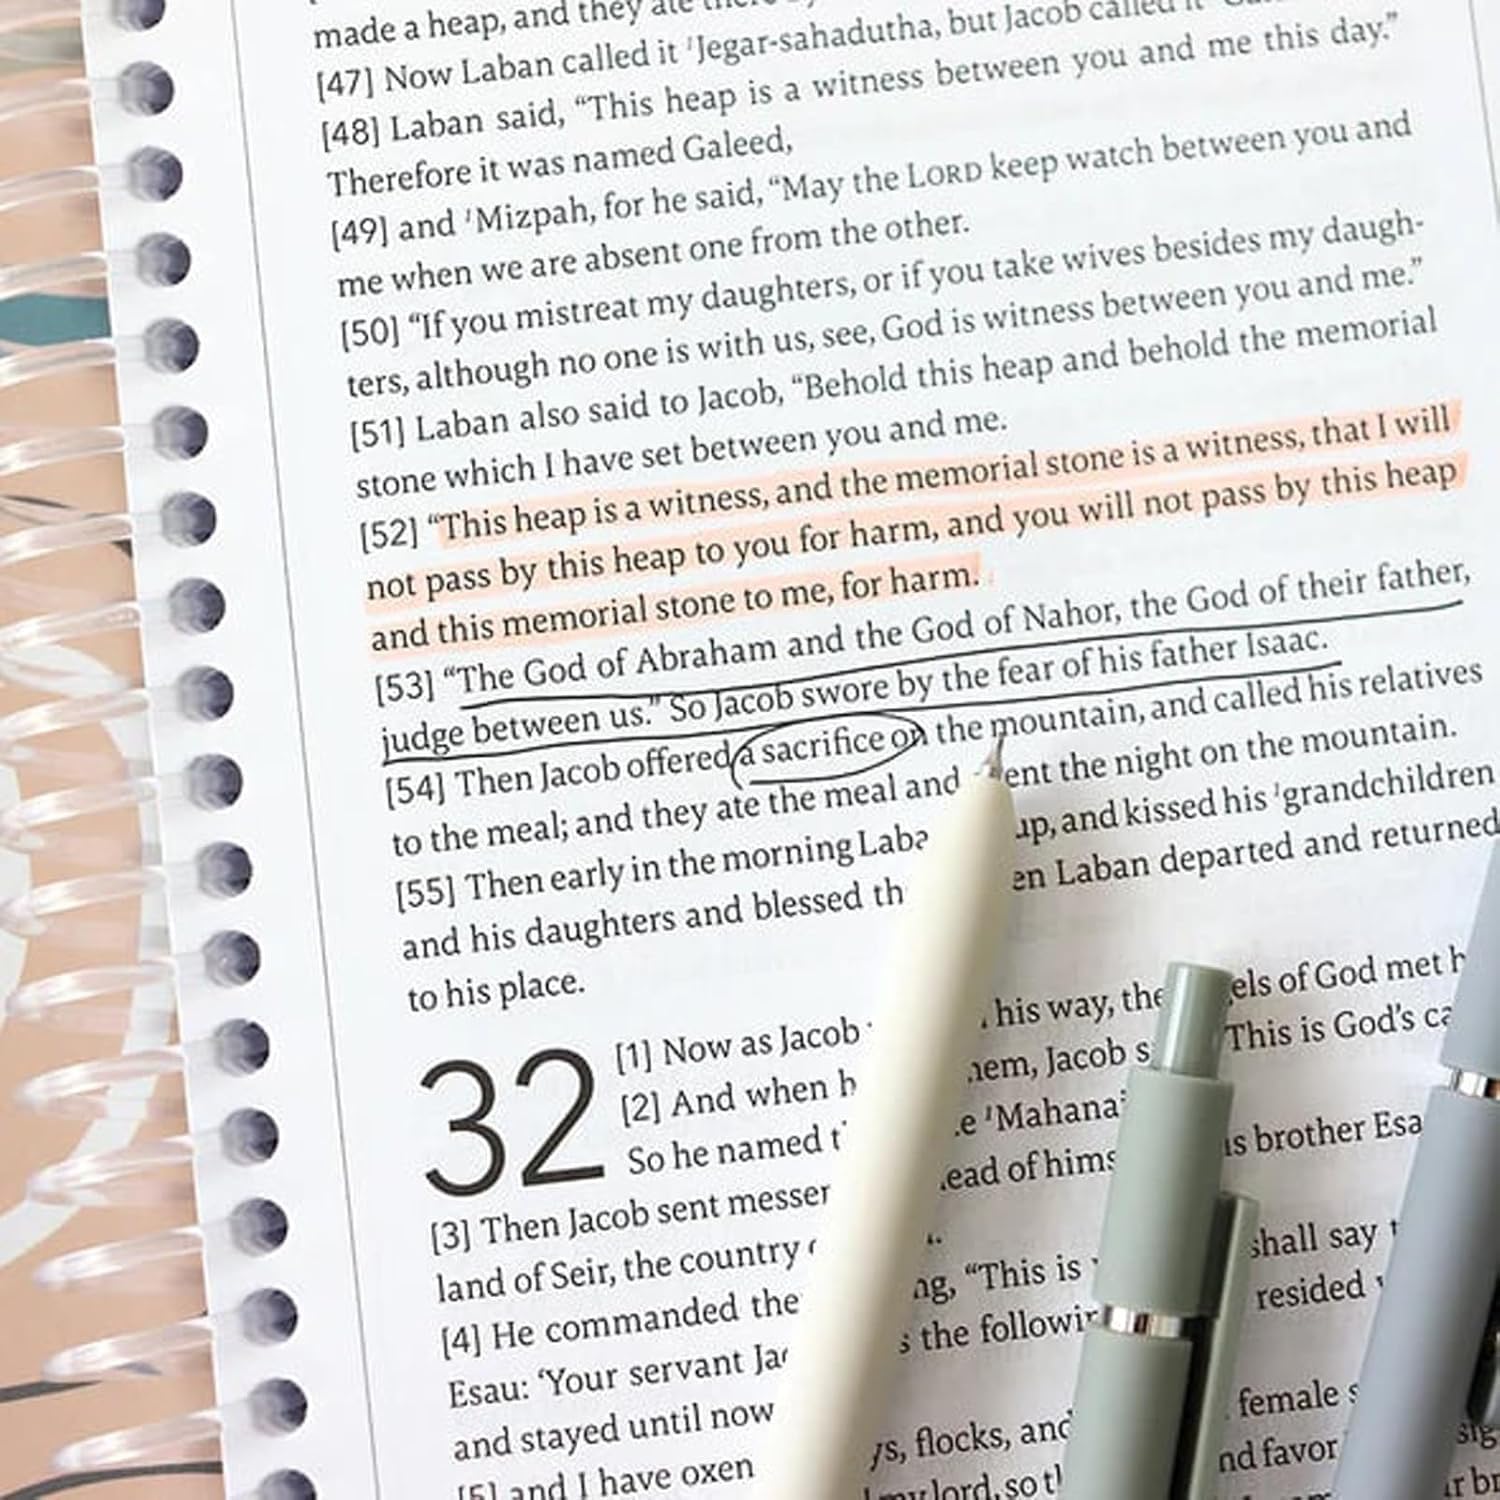 made a heap, and they ate
[47] Now Laban called it ¹Jegar-sahadutha, but Jacob called it
[48] Laban said, “This heap is a witness between you and me this day.”
Therefore it was named Galeed,
[49] and ¹Mizpah, for he said, “May the LORD keep watch between you and
me when we are absent one from the other.
[50] “If you mistreat my daughters, or if you take wives besides my daugh-
ters, although no one is with us, see, God is witness between you and me.”
[51] Laban also said to Jacob, “Behold this heap and behold the memorial
stone which I have set between you and me.
[52] “This heap is a witness, and the memorial stone is a witness, that I will
not pass by this heap to you for harm, and you will not pass by this heap
and this memorial stone to me, for harm.
[53] “The God of Abraham and the God of Nahor, the God of their father,
judge between us.” So Jacob swore by the fear of his father Isaac.
[54] Then Jacob offered a sacrifice on the mountain, and called his relatives
to the meal; and they ate the meal and ent the night on the mountain.
[55] Then early in the morning Laba up, and kissed his ¹grandchildren
and his daughters and blessed th en Laban departed and returned
to his place.
32
[1] Now as Jacob his way, the els of God met
[2] And when h hem, Jacob s This is God’s ca
So he named t e ¹Mahana
[3] Then Jacob sent messen ead of hims is brother Esa
land of Seir, the country
[4] He commanded the ng, “This is shall say
Esau: ‘Your servant Jac s the followin resided
and stayed until now
[5] and I have oxen ys, flocks, and female s
my lord, so th nd favor sig